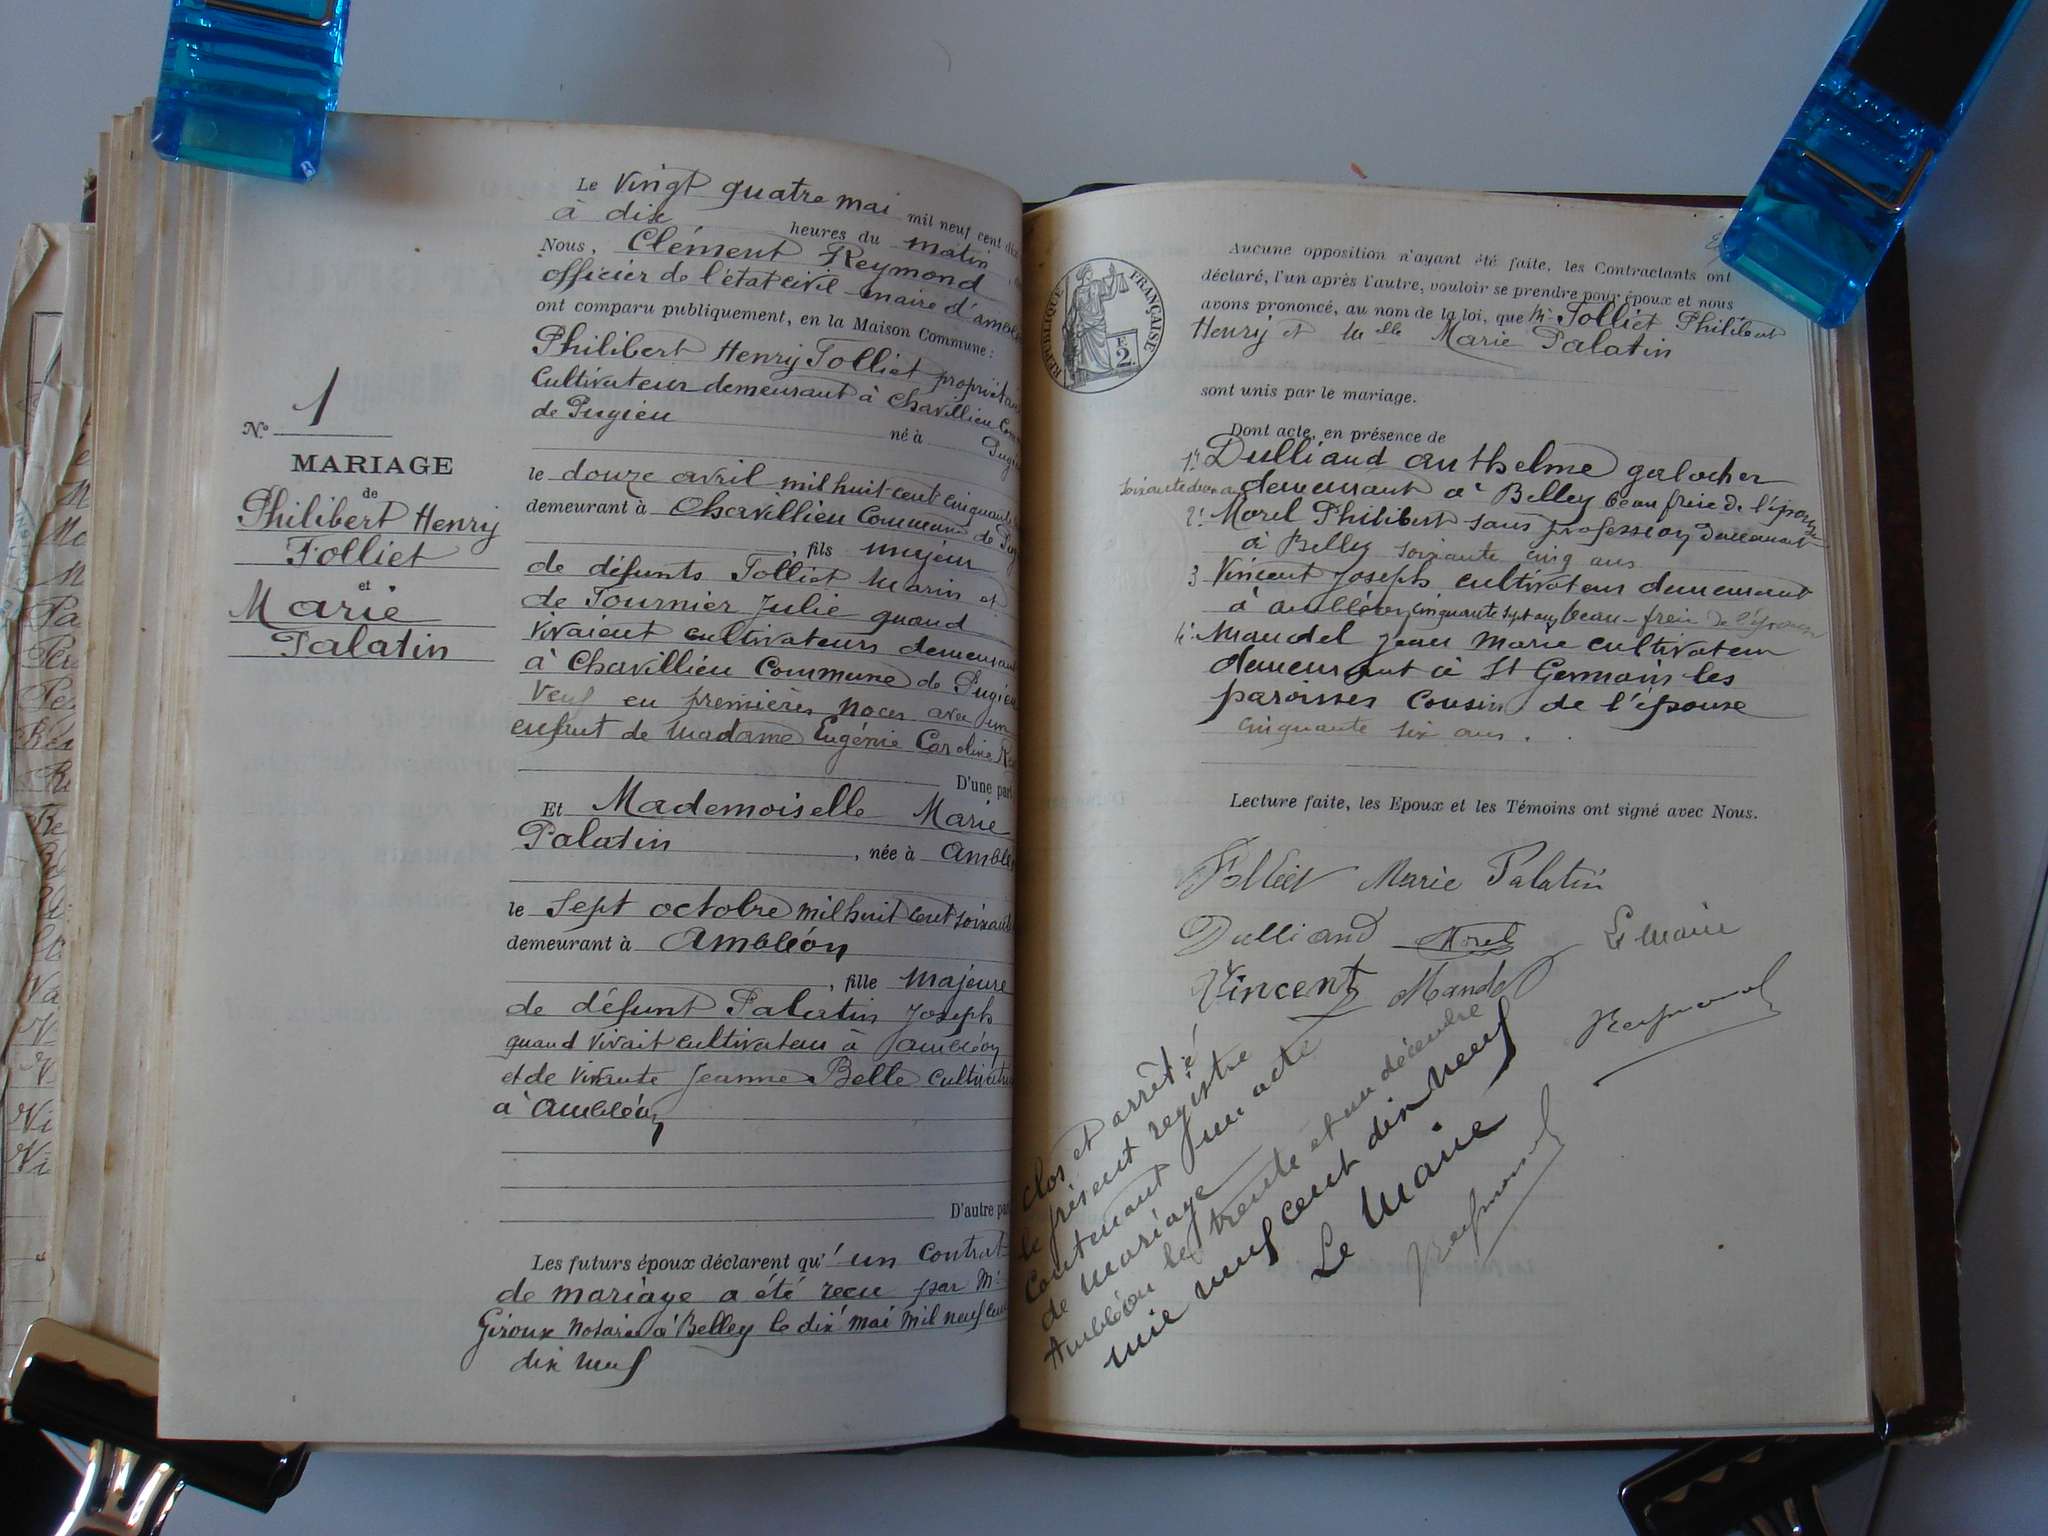 Le vingt quatre mai mil neuf cent dix
à dix heures du matin
Nous, Clément Reymond
officier de l'état civil maire d'amblé
ont comparu publiquement, en la Maison Commune :
Philibert Henry Folliet propriétair
cultivateur demeurant à Chavillieu Com
de Pugieu né à Pugi
le douze avril mil huit cent cinquante
demeurant à Chavillieu Commune de Pug
, fils majeur
de défunts Folliet Marin et
de Tournier Julie quand
vivaient cultivateurs demeurant
à Chavillieu Commune de Pugieu
Veuf en premières noces avec un
enfant de Madame Eugénie Caroline
D'une part
Et Mademoiselle Marie
Palatin , née à Amblé
le sept octobre mil huit cent soixant
demeurant à Ambléon
, fille majeure
de défunt Palatin Joseph
quand vivait cultivateur à ambléon
et de vivante Jeanne Belle cultivatri
à Ambléon
D'autre pa
Les futurs époux déclarent qu'un Contrat
de mariage a été recu par Me
Giroux Notaire à Belley le dix mai mil neuf cent
dix neuf
N° 1
MARIAGE
de
Philibert Henry
Folliet
et
Marie
Palatin
RÉPUBLIQUE FRANÇAISE
2F
Aucune opposition n'ayant été faite, les Contractants ont
déclaré, l'un après l'autre, vouloir se prendre pour époux et nous
avons prononcé, au nom de la loi, que Mr Folliet Philibert
Henry et Melle Marie Palatin
sont unis par le mariage.
Dont acte, en présence de
1° Dulliand anthelme galocher
soixante deux ans demeurant à Belley beau frère de l'épouse
2° Morel Philibert sans profession demeurant
à Belley soixante cinq ans
3 Vincent Joseph cultivateur demeurant
à ambléon cinquante sept ans beau-frère de l'épouse
4° Mandel Jean Marie cultivateur
demeurant à St Germain les
paroisses cousin de l'épouse
cinquante six ans.
Lecture faite, les Epoux et les Témoins ont signé avec Nous.
Folliet Marie Palatin
Dulliand Morel Le Maire
Vincent Mandel
Reymond
Clos et arrêté
le présent registre
contenant un acte
de mariage
Ambléon le trente et un décembre
mil neuf cent dix neuf
Le Maire
Reymond